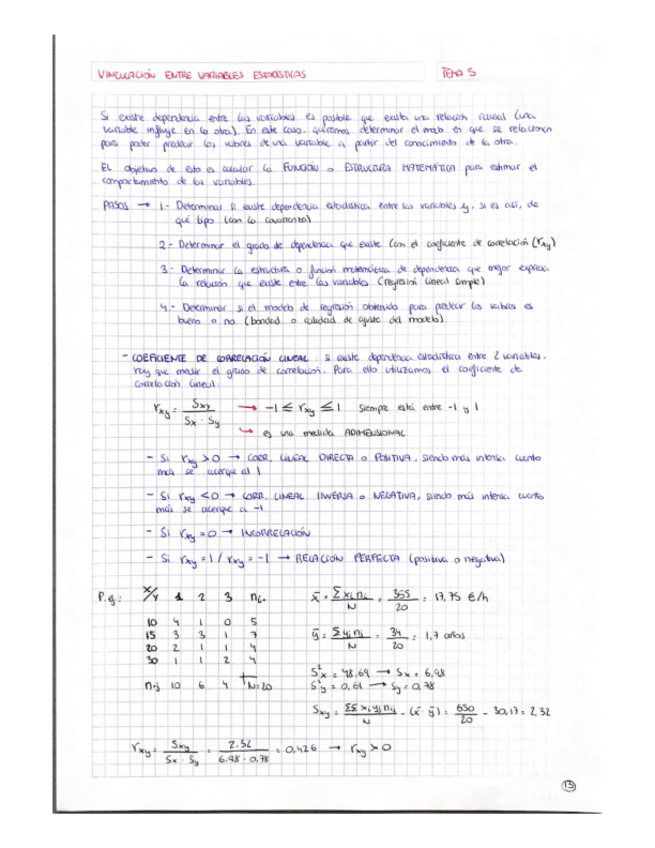 VINCULACIÓN ENTRE VARIABLES ESTADÍSTICAS
TEMA 5
Si existe dependencia entre las variables es posible que exista una relación causal (una
variable influye en la otra). En este caso, queremos determinar el modo en que se relacionan
para poder predecir los valores de una variable a partir del conocimiento de la otra.
El objetivo de esto es calcular la FUNCIÓN o ESTRUCTURA MATEMÁTICA para estimar el
comportamiento de las variables.
PASOS → 1.- Determinar si existe dependencia estadística entre las variables y, si es así, de
qué tipo (con la covarianza)
2.- Determinar el grado de dependencia que existe (con el coeficiente de correlación (rxy)
3.- Determinar la estructura o función matemática de dependencia que mejor expresa
la relación que existe entre las variables (regresión lineal simple)
4.- Determinar si el modelo de regresión obtenido para predecir los valores es
bueno o no (bondad o calidad de ajuste del modelo).
- COEFICIENTE DE CORRELACIÓN LINEAL: si existe dependencia estadística entre 2 variables,
hay que medir el grado de correlación. Para ello utilizamos el coeficiente de
correlación lineal:
rxy = Sxy / (Sx · Sy) → -1 ≤ rxy ≤ 1 Siempre está entre -1 y 1
↳ es una medida ADIMENSIONAL
- Si rxy > 0 → CORR. LINEAL DIRECTA o POSITIVA, siendo más intensa cuanto
más se acerque al 1
- Si rxy < 0 → CORR. LINEAL INVERSA o NEGATIVA, siendo más intensa cuanto
más se acerque a -1
- Si rxy = 0 → INCORRELACIÓN
- Si rxy = 1 / rxy = -1 → RELACIÓN PERFECTA (positiva o negativa)
P.ej: X/Y 1 2 3 ni.
10 4 1 0 5
15 3 3 1 7
20 2 1 1 4
30 1 1 2 4
n.j 10 6 4 N=20
x̄ = Σxi ni / N = 355 / 20 = 17,75 €/h
ȳ = Σyj nj / N = 34 / 20 = 1,7 años
S²x = 48,69 → Sx = 6,98
S²y = 0,61 → Sy = 0,78
Sxy = ΣΣ xi yj nij / N - (x̄ · ȳ) = 650 / 20 - 30,17 = 2,32
rxy = Sxy / (Sx · Sy) = 2,32 / (6,98 · 0,78) = 0,426 → rxy > 0
13